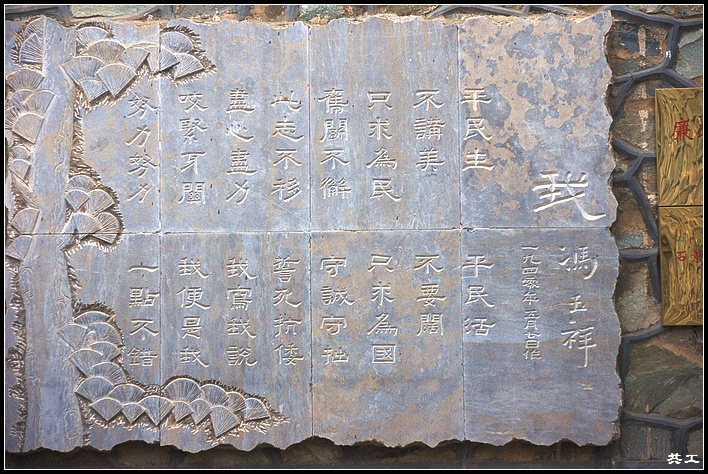 我
馮玉祥
一九四零年五月卅日自作
平民生 平民活
不講美 不要闊
只求為民 只求為國
奮鬥不懈 守誠守拙
此志不移 誓死抗倭
盡心盡力 我寫我說
咬緊牙關 我便是我
努力努力 一點不錯
廉
石
共工